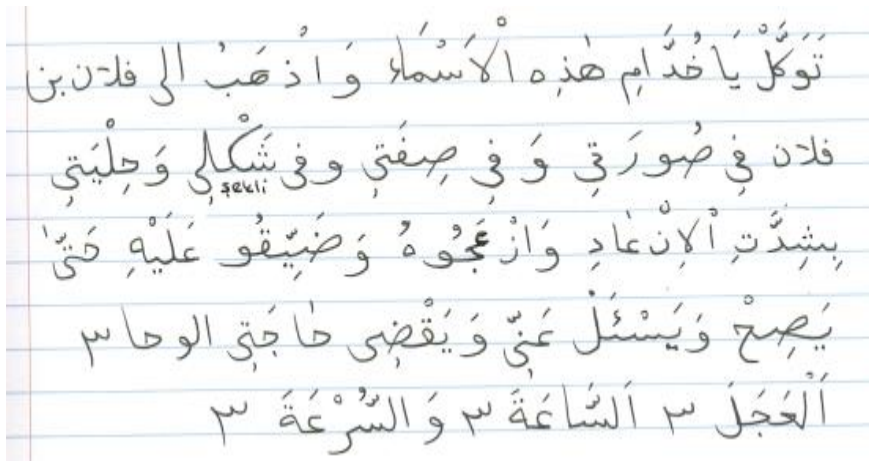 تَوَكَّلْ يَا خُدَّامِ هٰذِهِ الْاَسْمَاءِ وَ اذْهَبْ الى فلان بن
فلان فِي صُورَتِي وَ فِي صِفَتِي وفى شَكْلِي وَحِلْيَتِي
şekli
بِشِدَّتِ الْاِنْعَادِ وَازْعِجُوهُ وَضَيِّقُو عَلَيْهِ حَتَّى
يَصِحْ وَيَسْئَلْ عَنِّي وَيَقْضِى حَاجَتِي الوحا ٣
اَلْعَجَلَ ٣ اَلسَّاعَةَ ٣ وَالسُّرْعَةَ ٣